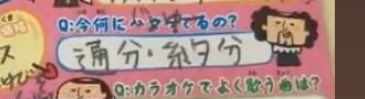 Q:今何に てるの?
通分・約分
Q:カラオケでよく歌う曲は?